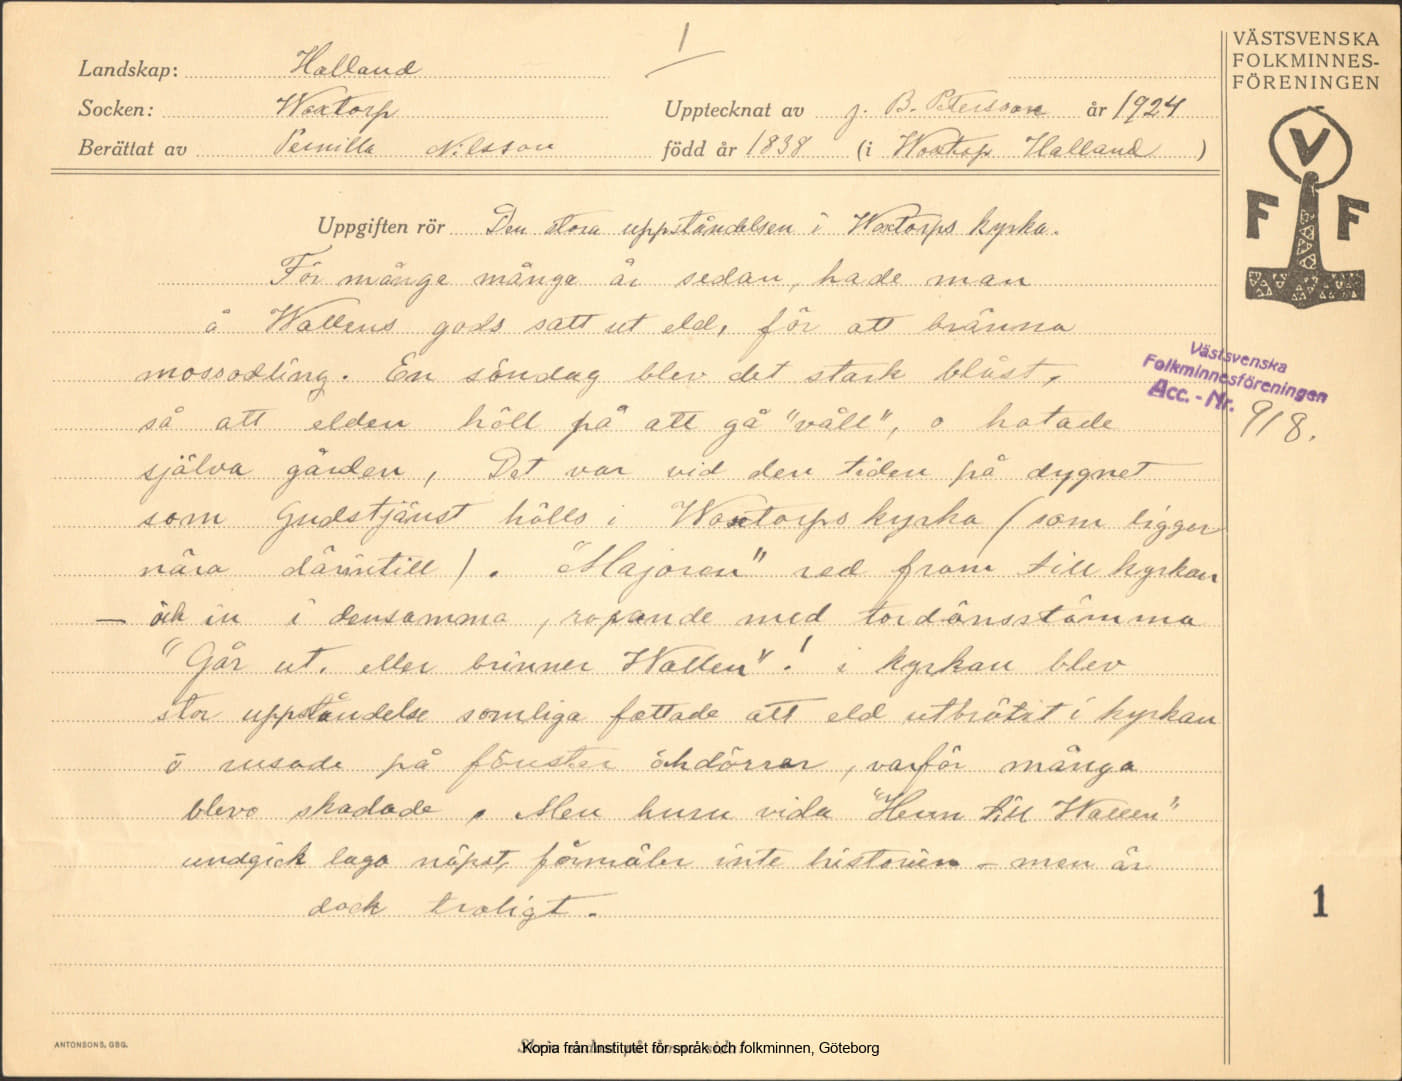 1
Landskap: Halland
Socken: Woxtorp
Upptecknat av J. B. Petersson år 1924
Berättat av Pernilla Nilsson född år 1838 (i Woxtorp Halland )
Uppgiften rör Den stora uppståndelsen i Woxtorps kyrka.
För många många år sedan, hade man
å Wallens gods satt ut eld, för att bränna
mossodling. En söndag blev det stark blåst,
så att elden höll på att gå "våll", o hotade
själva gården, Det var vid den tiden på dygnet
som Gudstjänst hölls i Woxtorps kyrka (som ligger
nära därintill). "Majoren" red fram till kyrkan
— och in i densamma, ropande med tordönsstämma
"Går ut, eller brinner Wallen"! i kyrkan blev
stor uppståndelse somliga fattade att eld utbrutit i kyrkan
o rusade på fönster och dörrar, varför många
blevo skadade. Men huru vida "Herrn till Wallen"
undgick laga näpst, förmäler inte historien – men är
dock troligt.
VÄSTSVENSKA
FOLKMINNES-
FÖRENINGEN
V
F F
Västsvenska
Folkminnesföreningen
Acc. - Nr. 918.
1
ANTONSONS, GBG.
Kopia från Institutet för språk och folkminnen, Göteborg